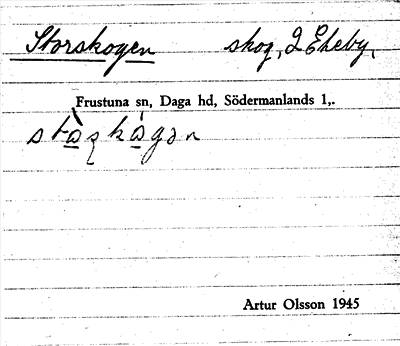 Storskogen skog, 2 Eheby,
Frustuna sn, Daga hd, Södermanlands l,.
Artur Olsson 1945